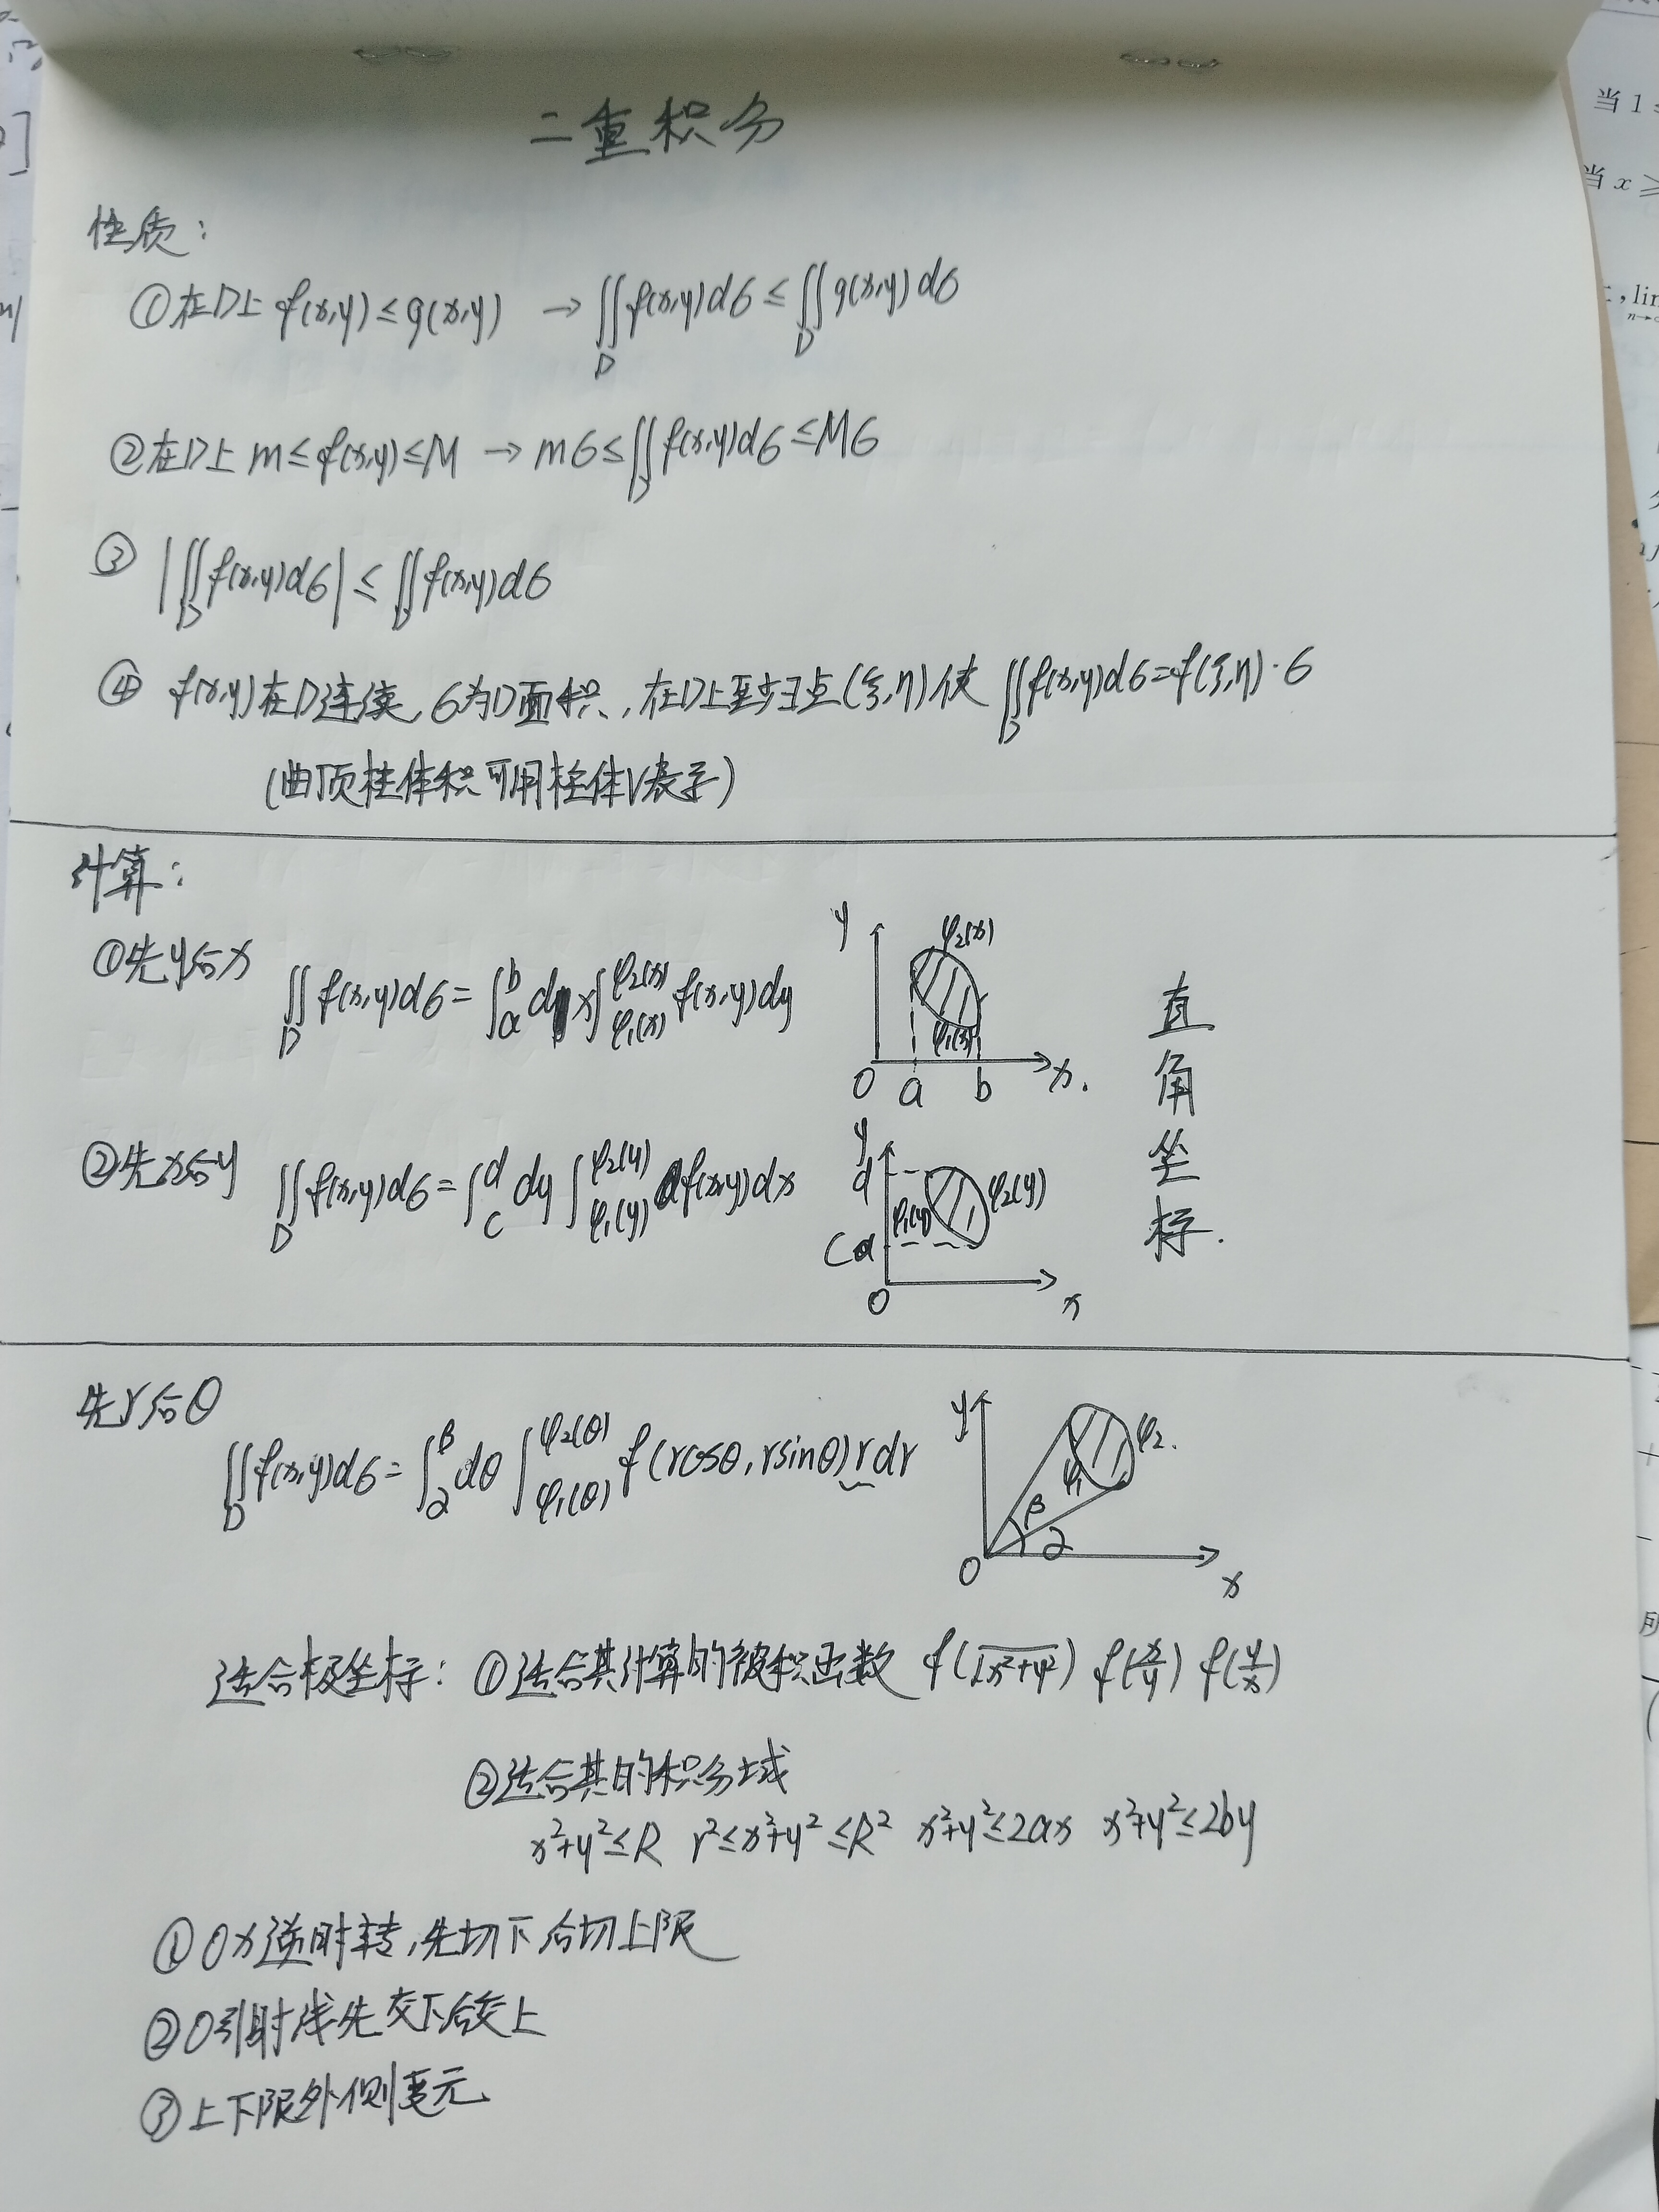 二重积分
性质：
①在D上 f(x,y)≤g(x,y) → ∬_D f(x,y)dσ≤∬_D g(x,y)dσ
②在D上 m≤f(x,y)≤M → mσ≤∬_D f(x,y)dσ≤Mσ
③ |∬_D f(x,y)dσ|≤∬_D f(x,y)dσ
④ f(x,y)在D连续，σ为D面积，在D上至少∃点(ξ,η)使 ∬_D f(x,y)dσ=f(ξ,η)·σ
(曲顶柱体积可用柱体V表示)
计算：
①先y后x ∬_D f(x,y)dσ=∫_a^b dx∫_{φ1(x)}^{φ2(x)} f(x,y)dy
y φ2(x) φ1(x) O a b x.
直角坐标.
②先x后y ∬_D f(x,y)dσ=∫_c^d dy∫_{φ1(y)}^{φ2(y)} f(x,y)dx
y d φ1(y) φ2(y) C O x
先r后θ
∬_D f(x,y)dσ=∫_α^β dθ∫_{φ1(θ)}^{φ2(θ)} f(rcosθ,rsinθ)rdr
y φ2. φ1 β α O x
适合极坐标：①适合其计算的被积函数 f(√x²+y²) f(x/y) f(y/x)
②适合其的积分域
x²+y²≤R r²≤x²+y²≤R² x²+y²≤2ax x²+y²≤2by
①Ox逆时转，先切下后切上限
②O引射线先交下后交上
③上下限外侧变元.
当 1
当 x ≥
, lim
n→